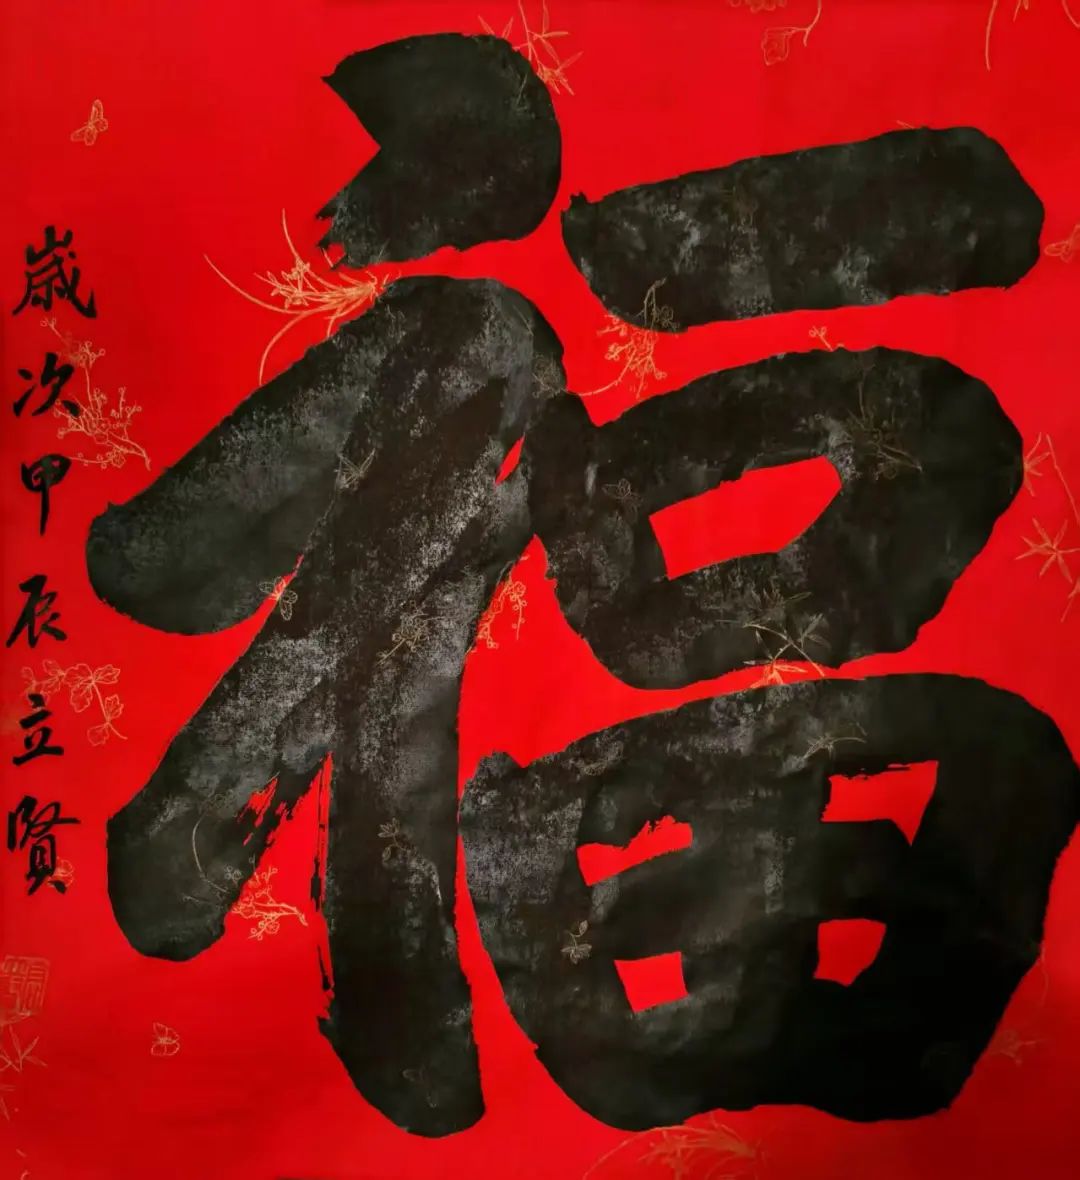 福
歲次甲辰立賢